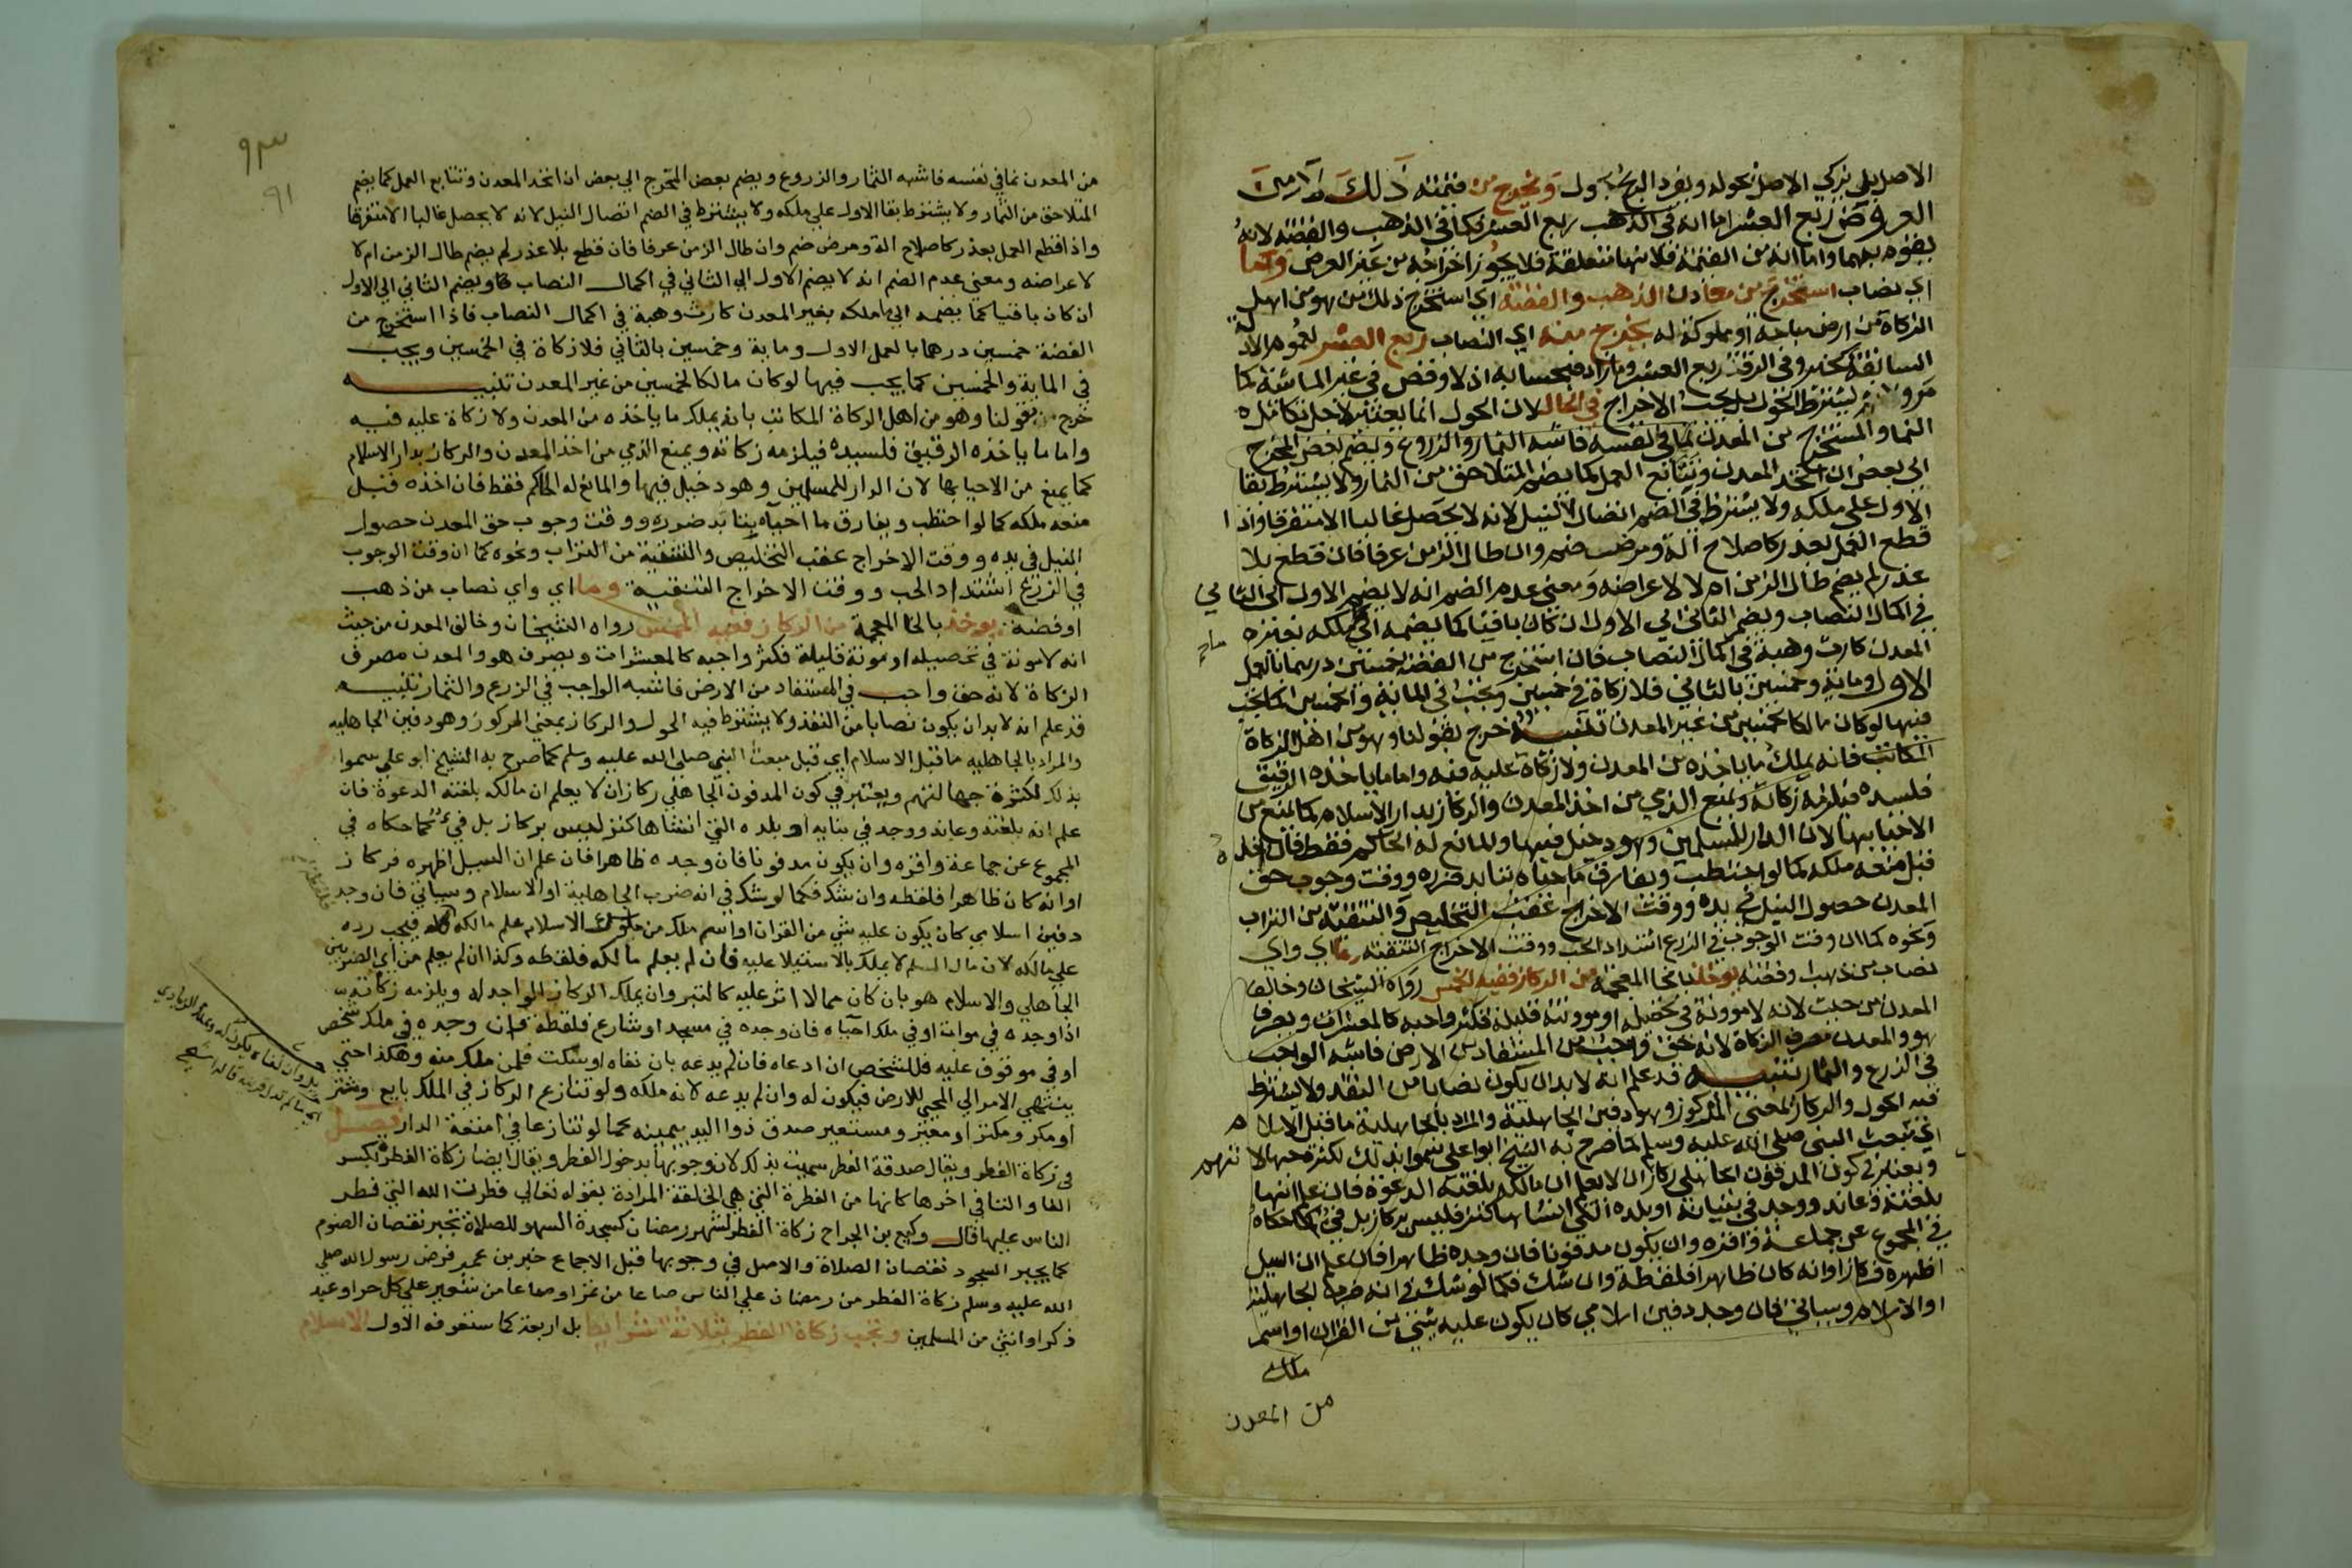 الاصل بل يزكي الاصل بحوله ويفرد الربح بحول ويخرج من قيمته ذلك لا من
العروض ربع العشر اما انه في الذهب ربع العشر فكما في الذهب والفضة لانه
يقوم بهما واما انه من القيمة فلانها متعلقه فلا يجوز اخراجه من عين العرض وما
اي نصاب استخرج من معادن الذهب والفضة اي استخرج ذلك من هو من اهل
الزكاة من ارض مباحة او مملوكة له يخرج منه اي النصاب ربع العشر لعموم الادلة
السابقة كخبر وفي الرقة ربع العشر وما زاد فبحسابه اذ لا وقص في غير الماشية كما
مر ولا يشترط الحول بل يجب الاخراج في الحال لان الحول انما يعتبر لاجل تكامل
النما والمستخرج من المعدن نما في نفسه فاشبه الثمار والزروع ويضم بعض المخرج
الي بعض ان اتحد المعدن وتتابع العمل كما يضم المتلاحق من الثمار ولا يشترط بقا
الاول علي ملكه ولا يشترط في الضم اتصال النيل لانه لا يحصل غالبا الا متفرقا واذا
قطع العمل بعذر كاصلاح آلة ومرض ضم وان طال الزمن عرفا فان قطع بلا
عذر لم يضم طال الزمن ام لا لاعراضه ومعني عدم الضم انه لا يضم الاول الي الثاني
في اكمال النصاب ويضم الثاني الي الاول ان كان باقيا كما يضمه الي ما ملكه بغير
المعدن كارث وهبة في اكمال النصاب فان استخرج من الفضة خمسين درهما بالعمل
الاول وماية وخمسين بالثاني فلا زكاة في خمسين وتجب في الماية والخمسين كما يجب
فيها لو كان مالكا لخمسين من غير المعدن تنبيه خرج بقولنا وهو من اهل الزكاة
المكاتب فانه يملك ما ياخذه من المعدن ولا زكاة عليه فيه واما ما ياخذه الرقيق
فلسيده فيلزمه زكاته ويمنع الذمي من اخذ المعدن والركاز بدار الاسلام كما يمنع من
الاحيا بها لان الدار للمسلمين وهو دخيل فيها والمانع له الحاكم فقط فان اخذه
قبل منعه ملكه كما لو احتطب ويفارق ما احياه بتابد ضرره ووقت وجوب حق
المعدن حصول النيل في يده ووقت الاخراج عقب التخليص والتنقية من التراب
ونحوه كما ان وقت الوجوب في الزرع اشتداد الحب ووقت الاخراج التنقية وما اي واي
نصاب من ذهب او فضة يوخذ بالخا المعجمة من الركاز ففيه الخمس رواه الشيخان وخالف
المعدن من حيث لانه لا موونة في تحصيله او موونته قليلة فكثر واجبه كالمعشرات ويصرف
هو والمعدن مصرف الزكاة لانه حق واجب من المستفاد من الارض فاشبه الواجب
في الزرع والثمار تنبيه قد علم انه لا بد ان يكون نصابا من النقد ولا يشترط
فيه الحول والركاز بمعني المركوز وهو دفين الجاهلية والمراد بالجاهلية ما قبل الاسلام
اي مبعث النبي صلي الله عليه وسلم كما صرح به الشيخ ابو علي سموا بذلك لكثرة جهالاتهم
ويعتبر في كون المدفون الجاهلي ركازا ان لا يعلم ان مالكه بلغته الدعوة فان علم انها
بلغته وعاند ووجد في بنيانه او بلده التي انشاها كنز فليس بركاز بل فيء كما حكاه
في المجموع عن جماعة واقره وان يكون مدفونا فان وجده ظاهرا فان علم ان السيل
اظهره فركاز او انه كان ظاهرا فلقطة وان شك فكما لو شك في انه ضرب الجاهلية
او الاسلام وسياتي فان وجد دفين اسلامي كان يكون عليه شيء من القران او اسم
ملك
من المعدن
٩٣
٩١
من المعدن نما في نفسه فاشبه الثمار والزروع ويضم بعض المخرج الي بعض ان اتحد المعدن وتتابع العمل كما يضم
المتلاحق من الثمار ولا يشترط بقا الاول علي ملكه ولا يشترط في الضم اتصال النيل لانه لا يحصل غالبا الا متفرقا
واذا قطع العمل بعذر كاصلاح الة ومرض ضم وان طال الزمن عرفا فان قطع بلا عذر لم يضم طال الزمن ام لا
لاعراضه ومعني عدم الضم انه لا يضم الاول الي الثاني في اكمال النصاب ويضم الثاني الي الاول
ان كان باقيا كما يضمه الي ما ملكه بغير المعدن كارث وهبة في اكمال النصاب فاذا استخرج من
الفضة خمسين درهما بالعمل الاول وماية وخمسين بالثاني فلا زكاة في الخمسين ويجب
في الماية والخمسين كما يجب فيها لو كان مالكا لخمسين من غير المعدن تنبيه
خرج بقولنا وهو من اهل الزكاة المكاتب بانه يملك ما ياخذه من المعدن ولا زكاة عليه فيه
واما ما ياخذه الرقيق فلسيده فيلزمه زكاته ويمنع الذمي من اخذ المعدن والركاز بدار الاسلام
كما يمنع من الاحيا بها لان الدار للمسلمين وهو دخيل فيها والمانع له الحاكم فقط فان اخذه قبل
منعه ملكه كما لو احتطب ويفارق ما احياه بتابد ضرره ووقت وجوب حق المعدن حصول
النيل في يده ووقت الاخراج عقب التخليص والتنقية من التراب ونحوه كما ان وقت الوجوب
في الزرع اشتداد الحب ووقت الاخراج التنقية وما اي واي نصاب من ذهب
او فضة يوخذ بالخا المعجمة من الركاز ففيه الخمس رواه الشيخان وخالف المعدن من حيث
انه لا موونة في تحصيله او مونة قليلة فكثر واجبه كالمعشرات ويصرف هو والمعدن مصرف
الزكاة لانه حق واجب في المستفاد من الارض فاشبه الواجب في الزرع والثمار تنبيه
قد علم انه لا بد ان يكون نصابا من النقد ولا يشترط فيه الحول والركاز بمعني المركوز وهو دفين الجاهليه
والمراد بالجاهليه ما قبل الاسلام اي قبل مبعث النبي صلي الله عليه وسلم كما صرح به الشيخ ابو علي سموا
بذلك لكثرة جهالتهم ويعتبر في كون المدفون الجاهلي ركازا ان لا يعلم ان مالكه بلغته الدعوة فان
علم انه بلغته وعاند ووجد في بنايه او بلده التي انشاها كنز ليس بركاز بل فيء كما حكاه في
المجموع عن جماعة واقره وان يكون مدفونا فان وجده ظاهرا فان علم ان السيل اظهره فركاز
او انه كان ظاهرا فلقطه وان شك فكما لو شك في انه ضرب الجاهلية او الاسلام وسياتي فان وجد
دفين اسلامي كان يكون عليه شي من القران او اسم ملك من ملوك الاسلام علم مالكه فيجب رده
علي مالكه لان مال المسلم لا يملك بالاستيلا عليه فان لم يعلم مالكه فلقطه وكذا ان لم يعلم من اي الضربين
الجاهلي والاسلام هو بان كان مما لا اثر عليه كالتبر وان يملك الركاز الواجد له ويلزمه زكاته
اذا وجده في موات او في ملك احياه فان وجده في مسجد او شارع فلقطة فان وجده في ملك شخص
او في موقوف عليه فللشخص ان ادعاه فان لم يدعه بان نفاه او سكت فلمن ملك منه وهكذا حتي
ينتهي الامر الي المحيي للارض فيكون له وان لم يدعه لانه ملكه ولو تنازع الركاز في الملك بايع ومشتر
او مكر ومكتر او معير ومستعير صدق ذو اليد بيمينه كما لو تنازعا في امتعة الدار فصل
في زكاة الفطر ويقال صدقة الفطر سميت بذلك لان وجوبها بدخول الفطر ويقال ايضا زكاة الفطره بكسر
الفا والتا في اخرها كانها من الفطرة التي هي الخلقة المرادة بقوله تعالي فطرت الله التي فطر
الناس عليها قال وكيع بن الجراح زكاة الفطر لشهر رمضان كسجدة السهو للصلاة تجبر نقصان الصوم
كما يجبر السجود نقصان الصلاة والاصل في وجوبها قبل الاجماع خبر بن عمر فرض رسول الله صلي
الله عليه وسلم زكاة الفطر من رمضان علي الناس صاعا من تمر او صاعا من شعير علي كل حر او عبد
ذكر او انثي من المسلمين وتجب زكاة الفطر بثلاثة شرايط بل اربعة كما ستعرفه الاول الاسلام